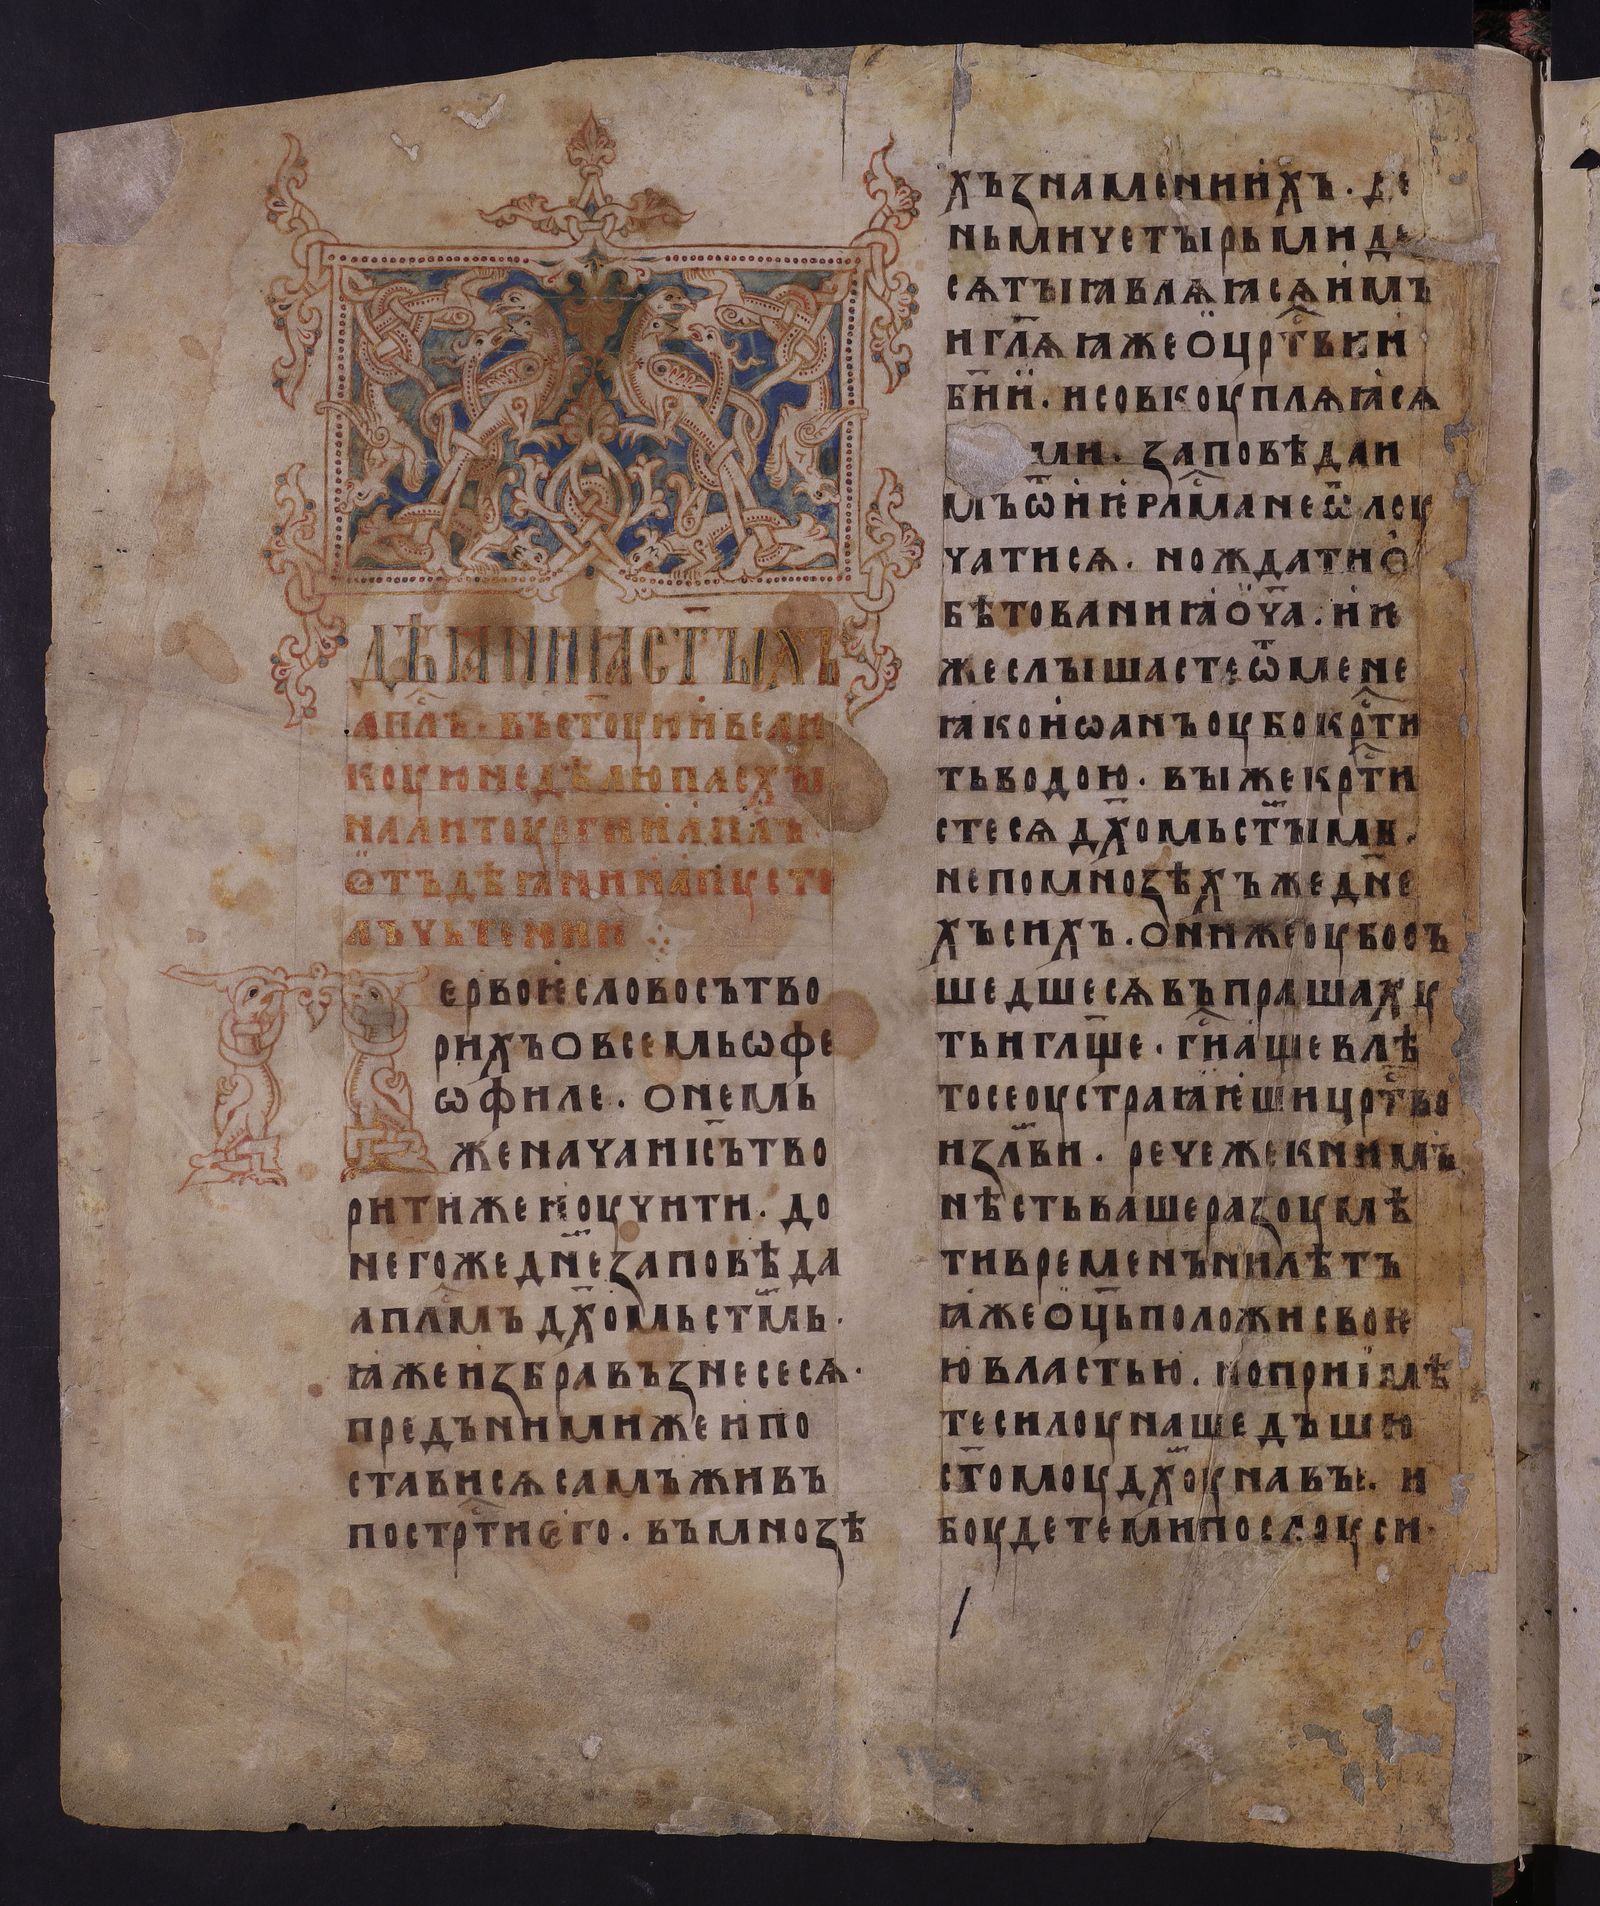 ДѢꙖНИꙖ СТ҃ЫХЪ
АП҃ЛЪ · ВЪ СТ҃ОУЮ И ВЕЛИ
КОУЮ НЕДѢЛЮ ПАСХЫ
НА ЛИТОУРГИИ АП҃ЛЪ ·
ѺТЪ ДѢꙖНИИ АПУСТО
ЛЪ ЧЬТЕНИИ
Первоѥ слово сътво
рихъ о всемь ѡ фе
ѡфиле . о немь
же начаиі҃съ тво
рити же и оучити . до
него же дн҃е заповѣда
апл҃мъ дх҃омь ст҃мь ·
ꙗже избра възнесесѧ ·
предъ ними же и по
стависѧ самъ живъ
по стрт҃и ѥго . въ мнозѣ
хъ знамениихъ · де
ньми четырьми де
сѧтъı ꙗвлѧꙗсѧ имъ
и гл҃ѧ ꙗже о црт҃вии
бж҃ии . и совкоуплѧꙗсѧ
ми . заповѣда и
мъ ѿ иѥрл҃ма не ѿлоу
чатисѧ . но ждати о
бѣтованиꙗ оч҃а . иѥ
же слышасте ѿ мене
ꙗко иѡанъ оубо крт҃и
ть водою . вы же крт҃и
стесѧ дх҃омь ст҃ыми .
не по мнозѣхъ же дн҃е
хъ сихъ . они же оубо съ
шедшесѧ въпрашахꙋ
ть и гл҃ще . гиа҃ще в лѣ
то се оустраꙗѥши црт҃во
изл҃ви . рече же к нимъ
нѣсть ваше разоумѣ
ти временъ ни лѣтъ
ꙗже оц҃ь положи своѥ
ю властью . но приімѣ
те силоу нашедъшю
ст҃омоу дх҃оу на въı . и
боудете ми послоуси ·